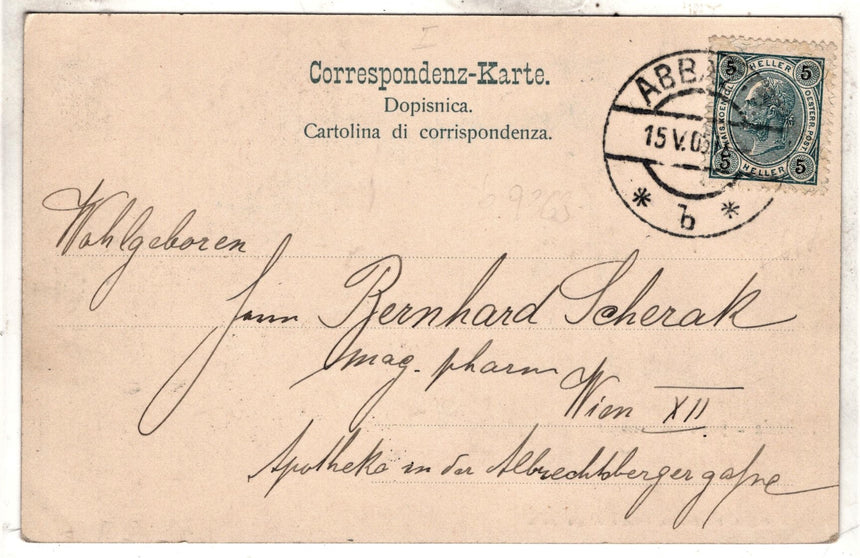 I
Correspondenz-Karte.
Dopisnica.
Cartolina di corrispondenza.
ABBA
15 V.
* b *
5 HELLER 5
KAIS. KOENIGL. OESTERR. POST.
5 HELLER 5
Wohlgeboren
Herrn Bernhard Scherak
mag. pharm
Wien XII
Apotheke in der Albrechtsbergergasse